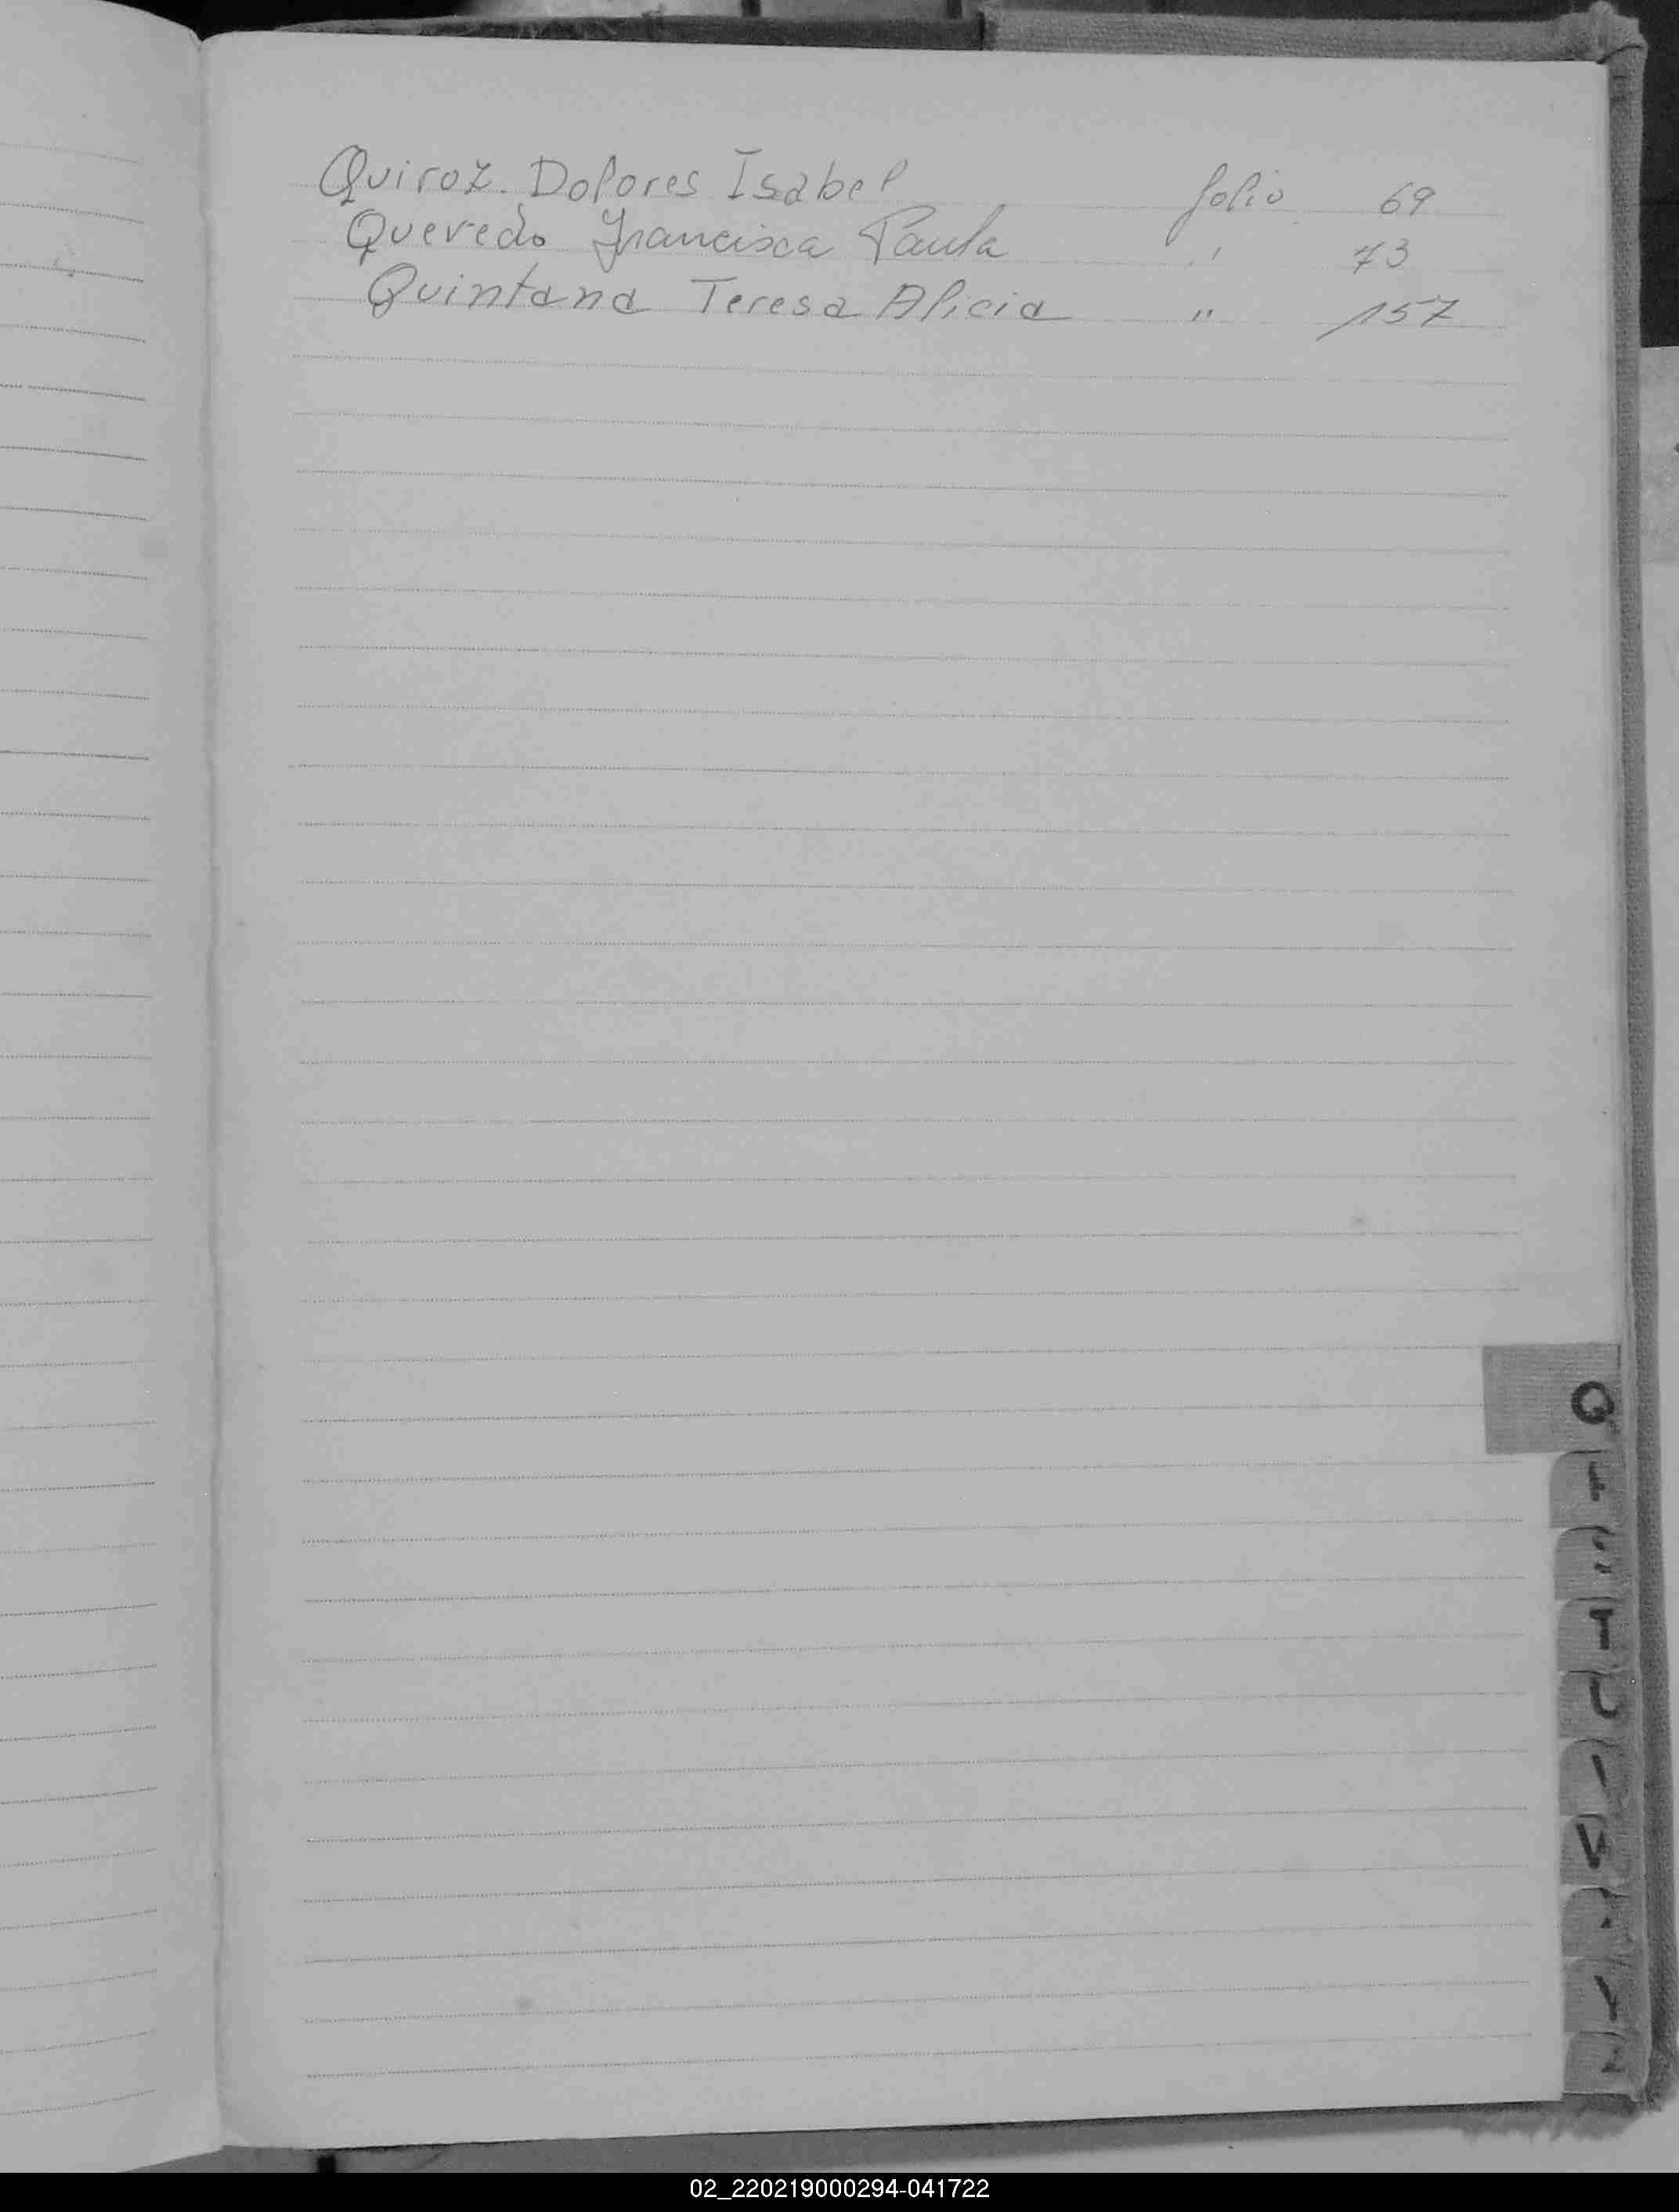 Quiroz. Dolores Isabel folio 69
Quevedo Francisca Paula " 73
Quintana Teresa Alicia " 157
Q
02_220219000294-041722